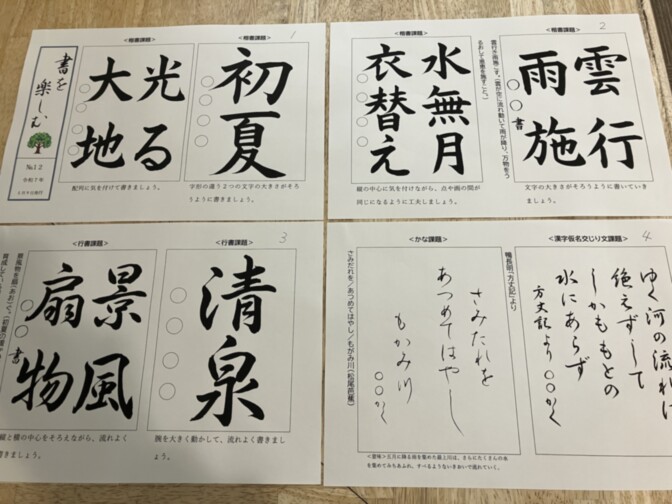 1
<楷書課題>
<楷書課題>
初夏
○○○○
光る
大地
○○○○
書を
楽しむ
No.12
令和7年
字形の違う2つの文字の大きさがそろ
うように書きましょう。
配列に気を付けて書きましょう。
2
<楷書課題>
<楷書課題>
雲行
雨施
○○書
水無月
衣替え
○○○○
文字の大きさがそろうように書いていき
ましょう。
縦の中心に気を付けながら、点や画の間が
同じになるように工夫しましょう。
3
<行書課題>
<行書課題>
清泉
○○○○
景風
扇物
○○書
腕を大きく動かして、流れよく書きまし
ょう。
縦と横の中心をそろえながら、流れよく
書きましょう。
4
<漢字仮名交じり文課題>
<かな課題>
ゆく河の流れは
絶えずして
しかももとの
水にあらず
方丈記より ○○かく
鴨長明「方丈記」より
さみだれを
あつめてはやし
もがみ川
○○かく
さみだれを/あつめてはやし/もがみ川(松尾芭蕉)
<意味>五月に降る雨を集めた最上川は、さらにたくさんの水
を集めてみちあふれ、すべるようないきおいで流れていく。